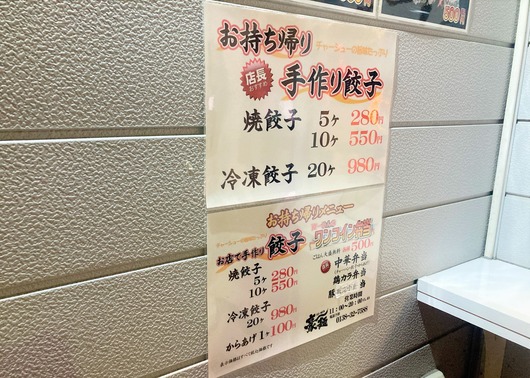 お持ち帰り
チャーシューの端味たっぷり
店長
おすすめ
手作り餃子
焼餃子 5ヶ 280円
10ヶ 550円
冷凍餃子 20ヶ 980円
お持ち帰りメニュー
お店で手作り餃子
焼餃子
5ヶ 280円
10ヶ 550円
冷凍餃子
20ヶ 980円
からあげ1ヶ 100円
ワンコイン弁当
ごはん大盛無料
500円
中華弁当
鶏カラ弁当
営業時間
11:00~20:00
0138-32-7588